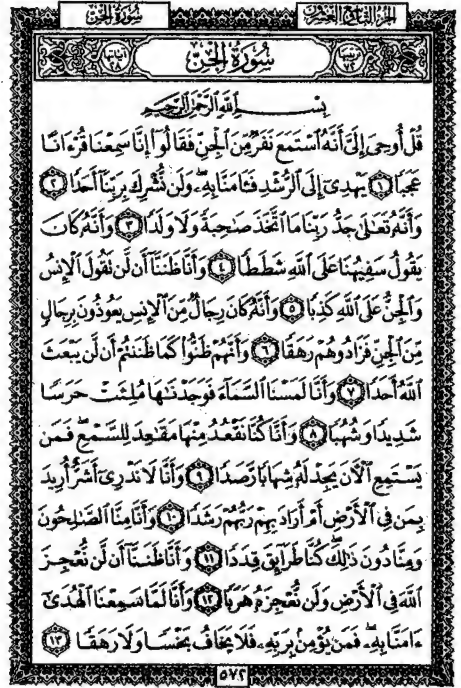 الجزء التاسع والعشرون
سورة الجن
ترتيبها ٧٢
سُورَةُ الْجِنِّ
آياتها ٢٨
بِسْمِ اللَّهِ الرَّحْمَٰنِ الرَّحِيمِ
قُلْ أُوحِيَ إِلَيَّ أَنَّهُ ٱسْتَمَعَ نَفَرٌ مِّنَ ٱلْجِنِّ فَقَالُوٓا۟ إِنَّا سَمِعْنَا قُرْءَانًا
عَجَبًا ١ يَهْدِىٓ إِلَى ٱلرُّشْدِ فَـَٔامَنَّا بِهِۦ وَلَن نُّشْرِكَ بِرَبِّنَآ أَحَدًا ٢
وَأَنَّهُۥ تَعَـٰلَىٰ جَدُّ رَبِّنَا مَا ٱتَّخَذَ صَـٰحِبَةً وَلَا وَلَدًا ٣ وَأَنَّهُۥ كَانَ
يَقُولُ سَفِيهُنَا عَلَى ٱللَّهِ شَطَطًا ٤ وَأَنَّا ظَنَنَّآ أَن لَّن تَقُولَ ٱلْإِنسُ
وَٱلْجِنُّ عَلَى ٱللَّهِ كَذِبًا ٥ وَأَنَّهُۥ كَانَ رِجَالٌ مِّنَ ٱلْإِنسِ يَعُوذُونَ بِرِجَالٍ
مِّنَ ٱلْجِنِّ فَزَادُوهُمْ رَهَقًا ٦ وَأَنَّهُمْ ظَنُّوا۟ كَمَا ظَنَنتُمْ أَن لَّن يَبْعَثَ
ٱللَّهُ أَحَدًا ٧ وَأَنَّا لَمَسْنَا ٱلسَّمَآءَ فَوَجَدْنَـٰهَا مُلِئَتْ حَرَسًا
شَدِيدًا وَشُهُبًا ٨ وَأَنَّا كُنَّا نَقْعُدُ مِنْهَا مَقَـٰعِدَ لِلسَّمْعِ فَمَن
يَسْتَمِعِ ٱلْـَٔانَ يَجِدْ لَهُۥ شِهَابًا رَّصَدًا ٩ وَأَنَّا لَا نَدْرِىٓ أَشَرٌّ أُرِيدَ
بِمَن فِى ٱلْأَرْضِ أَمْ أَرَادَ بِهِمْ رَبُّهُمْ رَشَدًا ١٠ وَأَنَّا مِنَّا ٱلصَّـٰلِحُونَ
وَمِنَّا دُونَ ذَٰلِكَ كُنَّا طَرَآئِقَ قِدَدًا ١١ وَأَنَّا ظَنَنَّآ أَن لَّن نُّعْجِزَ
ٱللَّهَ فِى ٱلْأَرْضِ وَلَن نُّعْجِزَهُۥ هَرَبًا ١٢ وَأَنَّا لَمَّا سَمِعْنَا ٱلْهُدَىٰٓ
ءَامَنَّا بِهِۦ فَمَن يُؤْمِنۢ بِرَبِّهِۦ فَلَا يَخَافُ بَخْسًا وَلَا رَهَقًا ١٣
٥٧٢